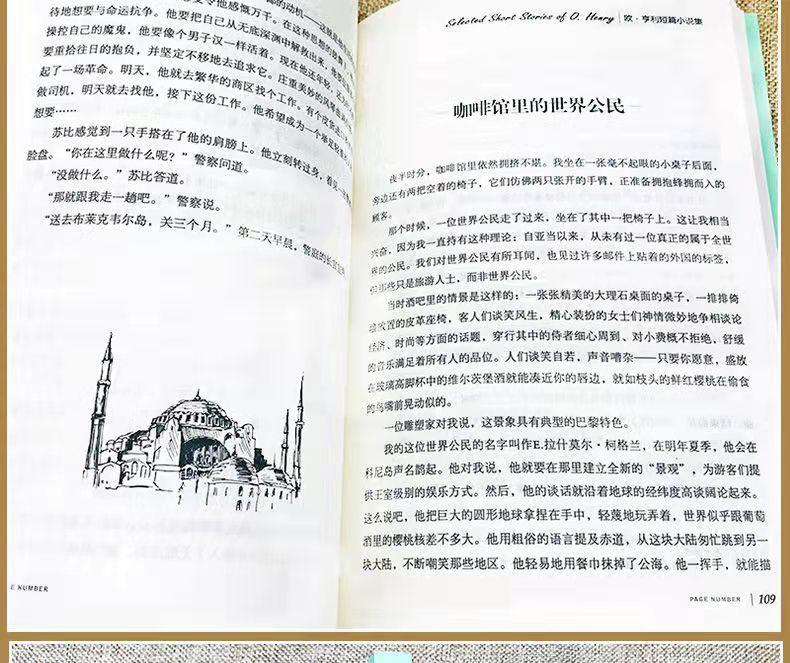 的动机——这就是
受令他感慨万千。在这种思想的
待地想要与命运抗争。他要把自己从无底深渊中解救出来，他要
操控自己的魔鬼，他要像个男子汉一样活着。现在他还年轻，还为
要重拾往日的抱负，并坚定不移地去追求它。庄重美妙的风琴
起了一场革命。明天，他就去繁华的商区找个工作。有个皮货
做司机，明天就去找他，接下这份工作。他希望成为一个举足轻
想要……
苏比感觉到一只手搭在了他的肩膀上。他立刻转过身，看见一
脸盘。“你在这里做什么呢？”警察问道。
“没做什么。”苏比答道。
“那就跟我走一趟吧。”警察说。
“送去布莱克韦尔岛，关三个月。”第二天早晨，警庭的长官
E NUMBER
Selected Short Stories of O. Henry 欧·亨利短篇小说集
咖啡馆里的世界公民
夜半时分，咖啡馆里依然拥挤不堪。我坐在一张毫不起眼的小桌子后面，
旁边还有两把空着的椅子，它们仿佛两只张开的手臂，正准备拥抱蜂拥而入的
顾客。
那个时候，一位世界公民走了过来，坐在了其中一把椅子上。这让我相当
兴奋，因为我一直持有这种理论：自亚当以来，从未有过一位真正的属于全世
界的公民。我们对世界公民有所耳闻，也见过许多邮件上贴着的外国的标签，
但那些只是旅游人士，而非世界公民。
当时酒吧里的情景是这样的：一张张精美的大理石桌面的桌子，一排排倚
墙放置的皮革座椅，客人们谈笑风生，精心装扮的女士们神情微妙地争相谈论
经济、时尚等方面的话题，穿行其中的侍者细心周到、对小费概不拒绝、舒缓
的音乐满足着所有人的品位。人们谈笑自若，声音嘈杂——只要你愿意，盛放
在玻璃高脚杯中的维尔茨堡酒就能凑近你的唇边，就如枝头的鲜红樱桃在偷食
的鸟嘴前晃动似的。
一位雕塑家对我说，这景象具有典型的巴黎特色。
我的这位世界公民的名字叫作E.拉什莫尔·柯格兰，在明年夏季，他会在
科尼岛声名鹊起。他对我说，他就要在那里建立全新的“景观”，为游客们提
供王室级别的娱乐方式。然后，他的谈话就沿着地球的经纬度高谈阔论起来。
这么说吧，他把巨大的圆形地球拿捏在手中，轻蔑地玩弄着，世界似乎跟葡萄
酒里的樱桃核差不多大。他用粗俗的语言提及赤道，从这块大陆匆忙跳到另一
块大陆，不断嘲笑那些地区。他轻易地用餐巾抹掉了公海。他一挥手，就能描
PAGE NUMBER 109